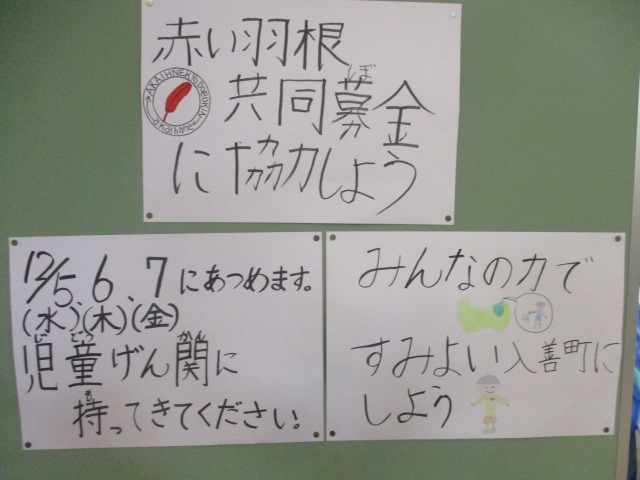 赤い羽根
共同募金
ぼ
AKAIHNEKYODOBOKIN
akaihane
に協力しよう
12/5、6、7にあつめます。
(水)、(木)(金)
じどう かん
児童げん関に
も
持ってきてください。
みんなの力で
すみよい入善町に
しよう